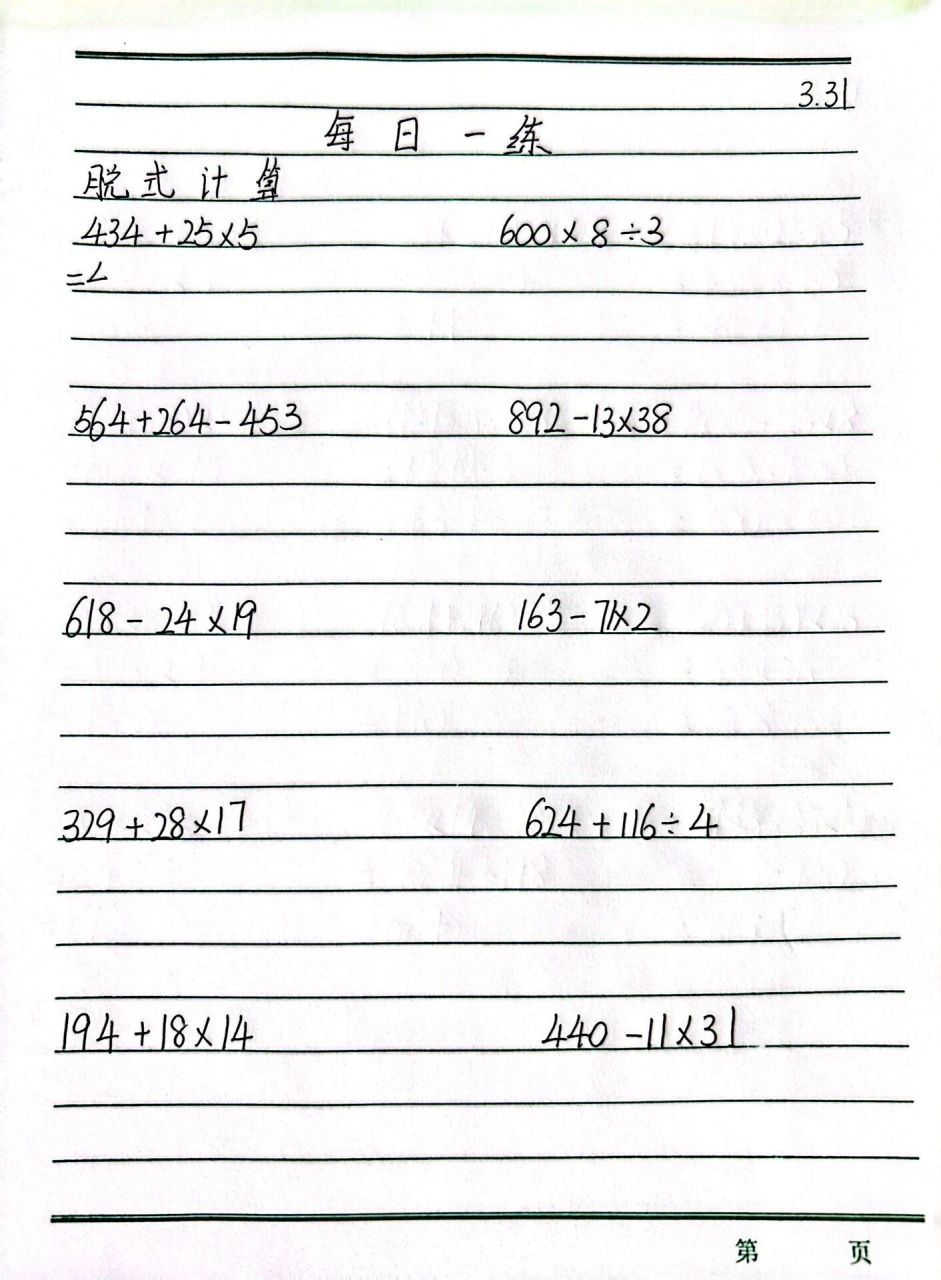 3.31
每日一练
脱式计算
434+25×5 600×8÷3
=∠
564+264-453 892-13×38
618-24×19 163-71×2
329+28×17 624+116÷4
194+18×14 440-11×31
第 页